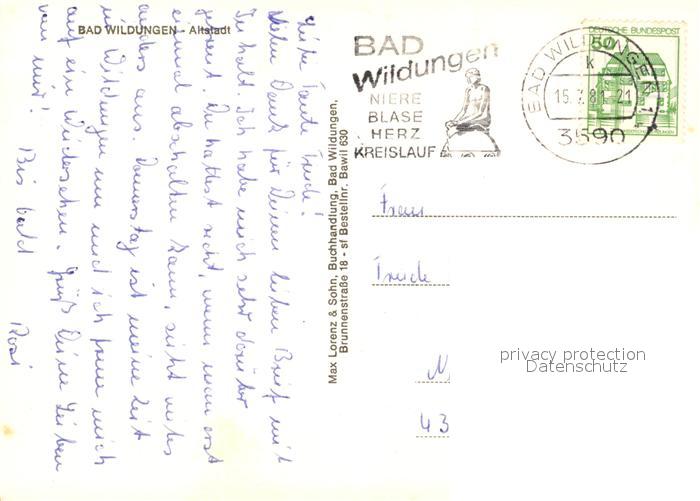 BAD WILDUNGEN - Altstadt
Liebe Tante Trude!
Vielen Dank für Deinen lieben Brief mit
Inhalt. Ich habe mich sehr darüber
gefreut. Du hattest recht, wenn man erst
einmal abschalten kann, sieht vieles
anders aus. Donnerstag ist meine Zeit
in Wildungen um und ich freue mich
auf ein Wiedersehen. Grüß Deine Lieben
von mir!
Bis bald
Rosi
Max Lorenz & Sohn, Buchhandlung, Bad Wildungen,
Brunnenstraße 18 - sf Bestellnr. Bawil 630
BAD
Wildungen
NIERE
BLASE
HERZ
KREISLAUF
BAD WILDUNGEN 1
k
15.7.81-21
3590
DEUTSCHE BUNDESPOST
50
Frau
Trude
M
43
privacy protection
Datenschutz